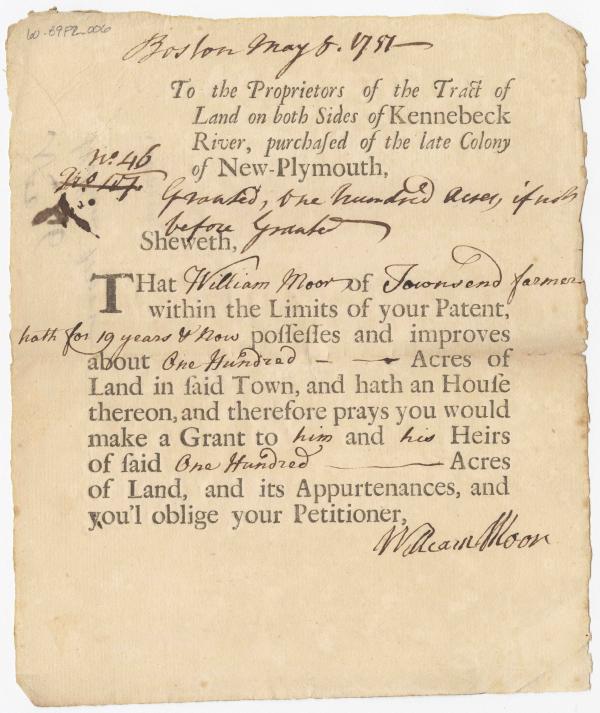 60-89P2-006
Boston May 8. 1751
To the Proprietors of the Tract of
Land on both Sides of Kennebeck
River, purchaſed of the late Colony
of New-Plymouth,
No. 46
No.
Granted, one hundred acres, if not
before Granted
Sheweth,
THat William Moor of Townsend farmer
within the Limits of your Patent,
hath for 19 years & now poſſeſſes and improves
about One Hundred Acres of
Land in ſaid Town, and hath an Houſe
thereon, and therefore prays you would
make a Grant to him and his Heirs
of ſaid One Hundred Acres
of Land, and its Appurtenances, and
you'l oblige your Petitioner,
William Moor